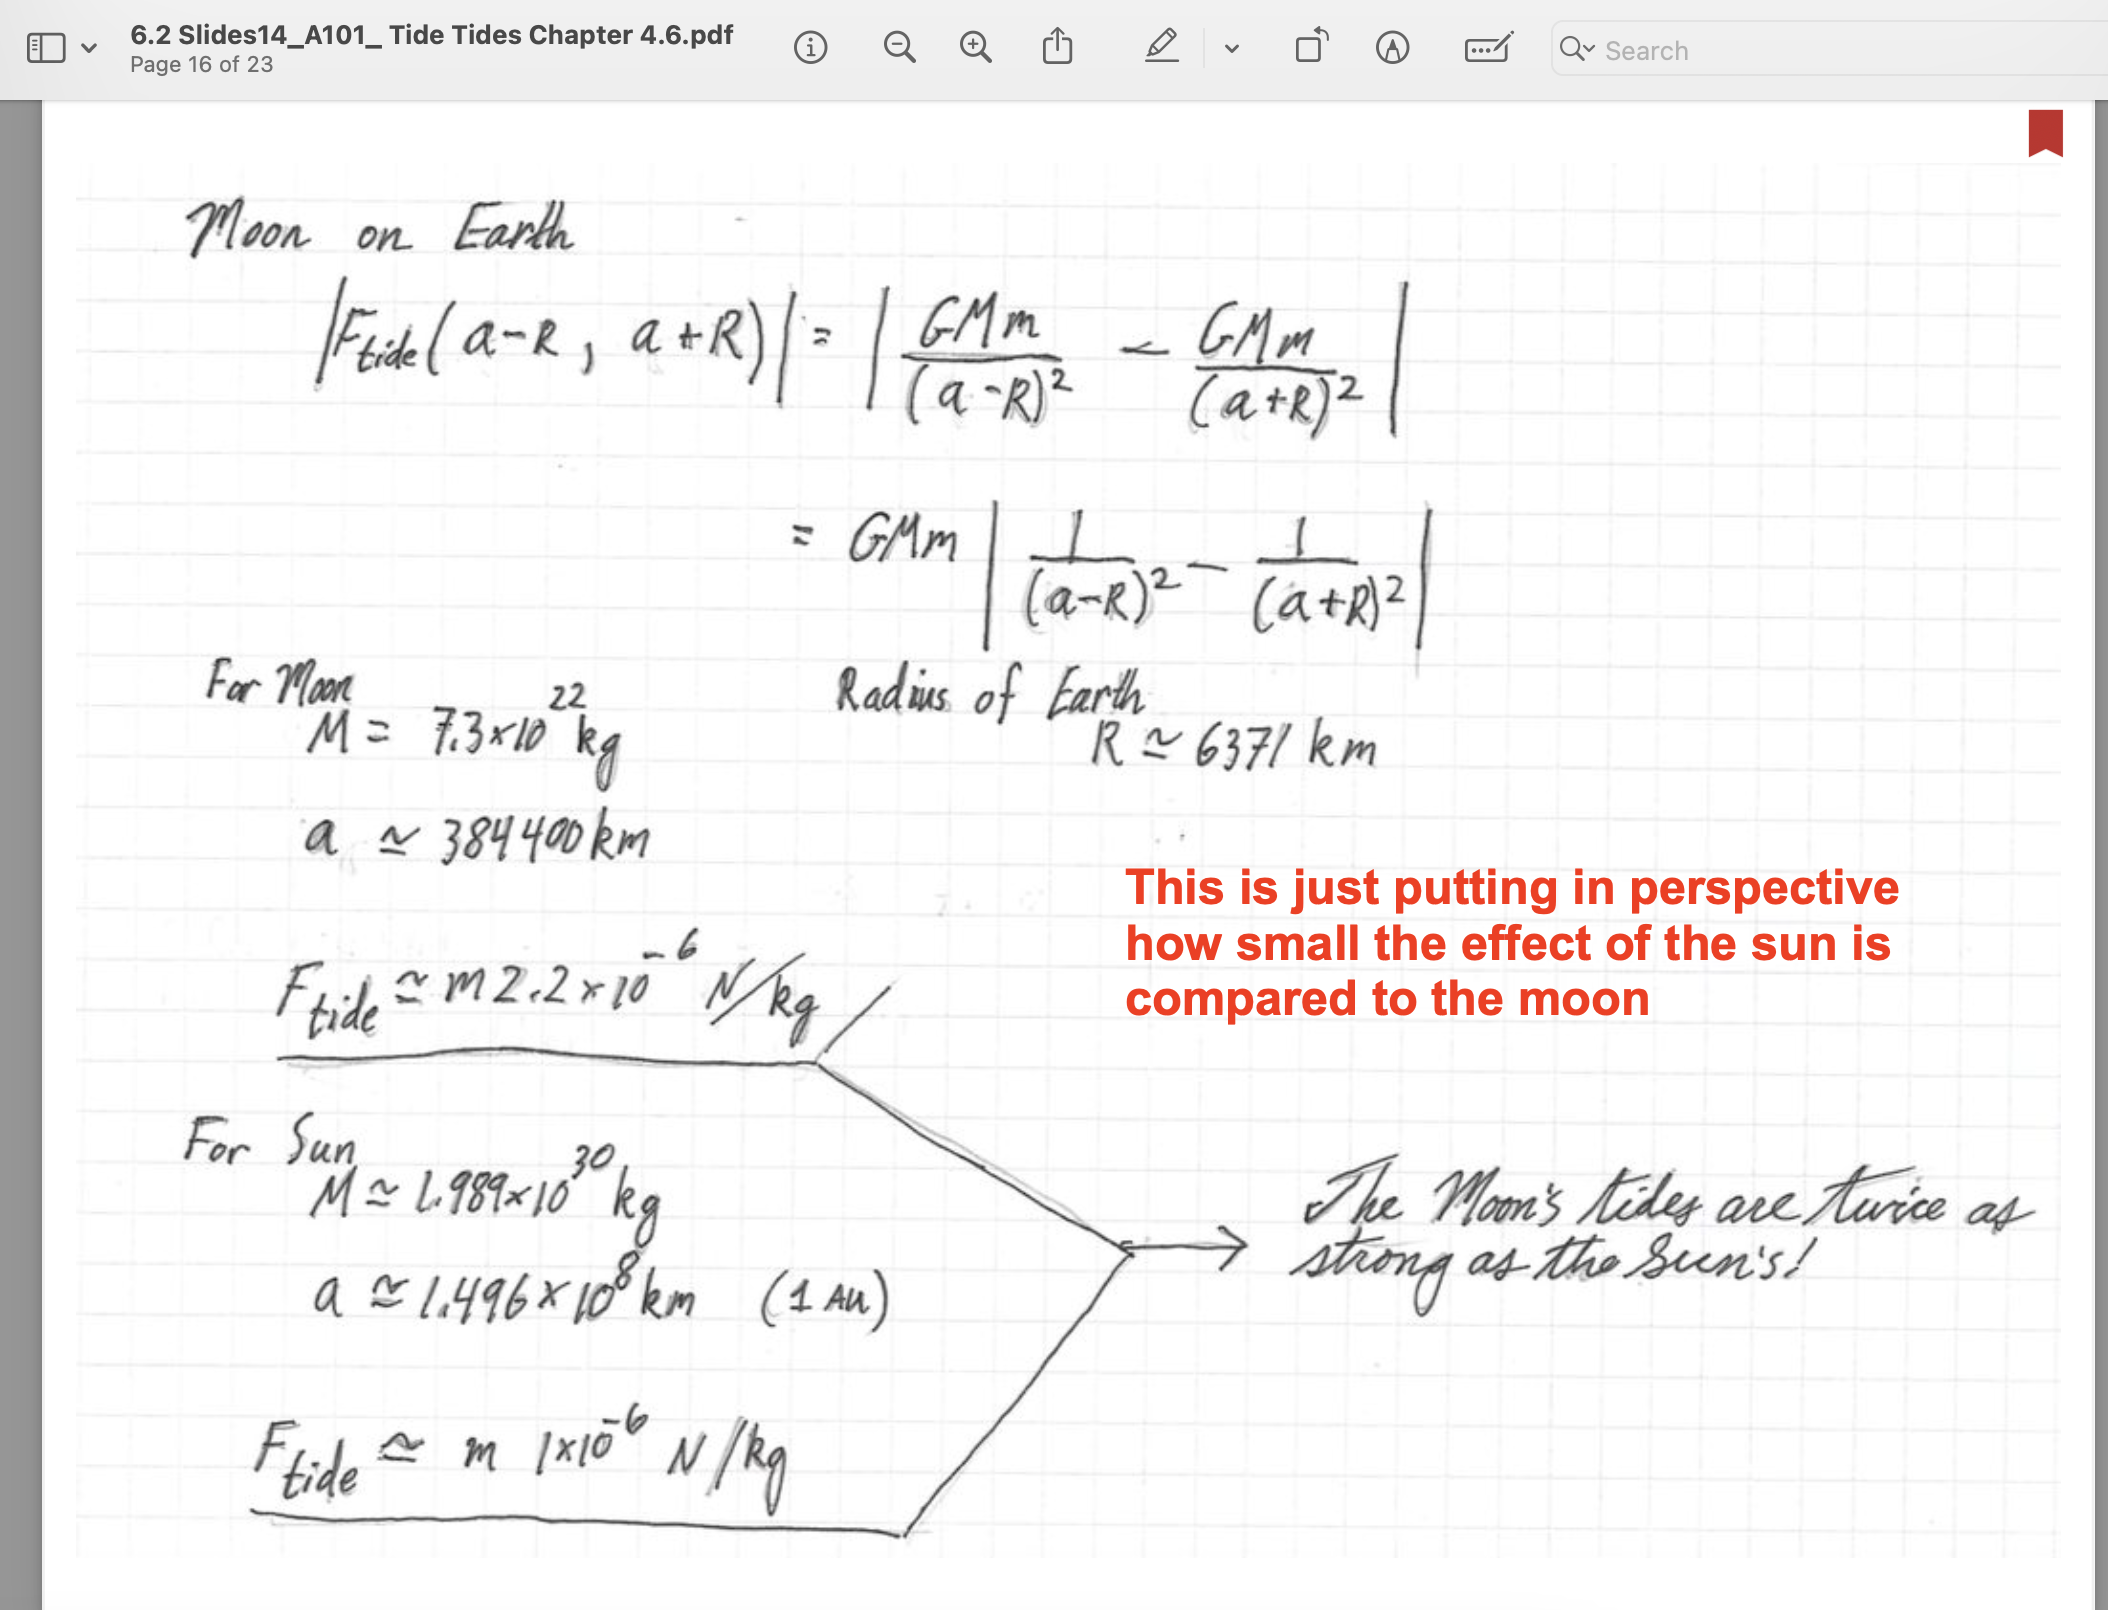 6.2 Slides14_A101_ Tide Tides Chapter 4.6.pdf
Page 16 of 23
Search
Moon on Earth
|Ftide(a-R, a+R)| = | GMm/(a-R)² - GMm/(a+R)² |
= GMm | 1/(a-R)² - 1/(a+R)² |
For Moon
M = 7.3×10²² kg
a ≃ 384400 km
Radius of Earth
R ≃ 6371 km
This is just putting in perspective
how small the effect of the sun is
compared to the moon
Ftide ≃ m 2.2×10⁻⁶ N/kg
For Sun
M ≃ 1.989×10³⁰ kg
a ≃ 1.496×10⁸ km (1 AU)
Ftide ≃ m 1×10⁻⁶ N/kg
The Moon's tides are twice as
strong as the Sun's!